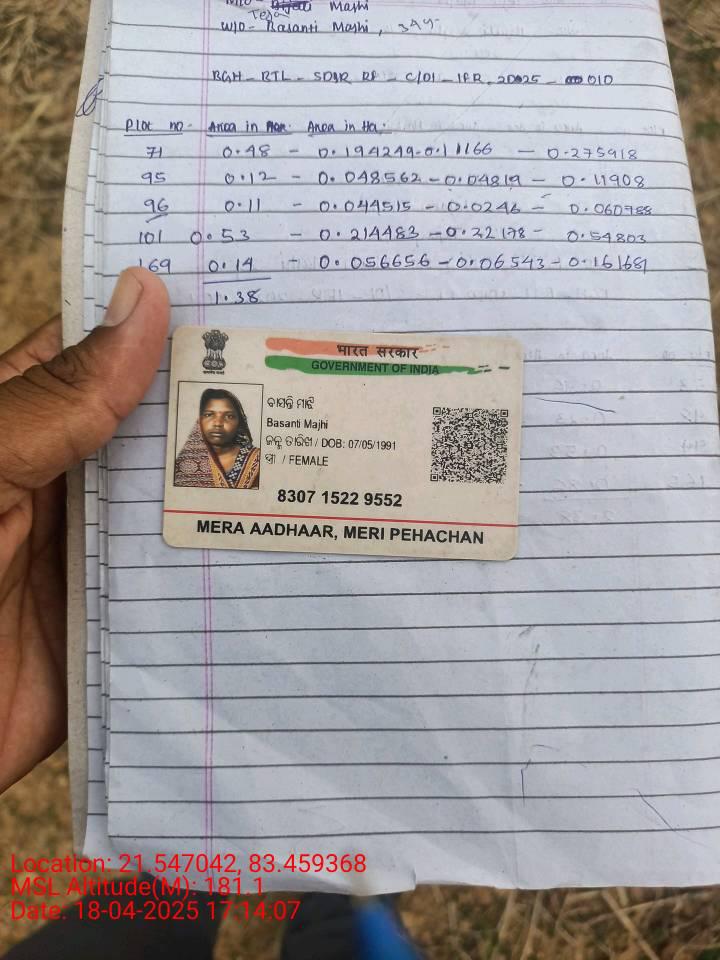 Majhi
Teja
W/O - Basanti Majhi,
BGH - BTL - SDAR RF - C/DI - IFR - 2025 - 010
Plot no - Area in Acr. Area in Ha.
71 0.48 - 0.194249 - 0.11166 - 0.275918
95 0.12 - 0.048562 - 0.04819 - 0.11908
96 0.11 - 0.044515 - 0.0246 - 0.060788
101 0.53 - 0.214483 - 0.22178 - 0.54803
169 0.14 - 0.056656 - 0.06543 - 0.161681
1.38
भारत सरकार
GOVERNMENT OF INDIA
ବାସନ୍ତି ମାଝି
Basanti Majhi
ଜନ୍ମ ତାରିଖ / DOB: 07/05/1991
ସ୍ତ୍ରୀ / FEMALE
8307 1522 9552
MERA AADHAAR, MERI PEHACHAN
Location: 21.547042, 83.459368
MSL Altitude(M): 181.1
Date: 18-04-2025 17:14:07